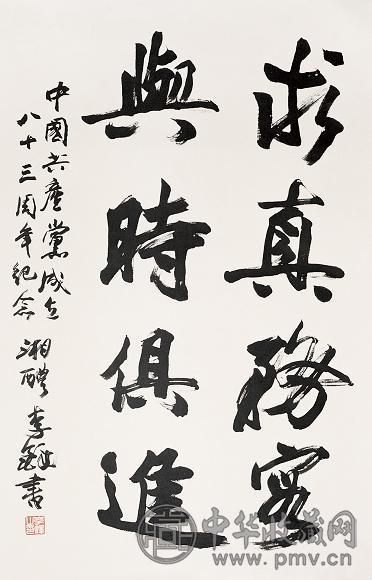 求真務實
與時俱進
中國共產黨成立
八十三周年紀念 湘醴 李鐸书
中华收藏网
www.pmv.cn